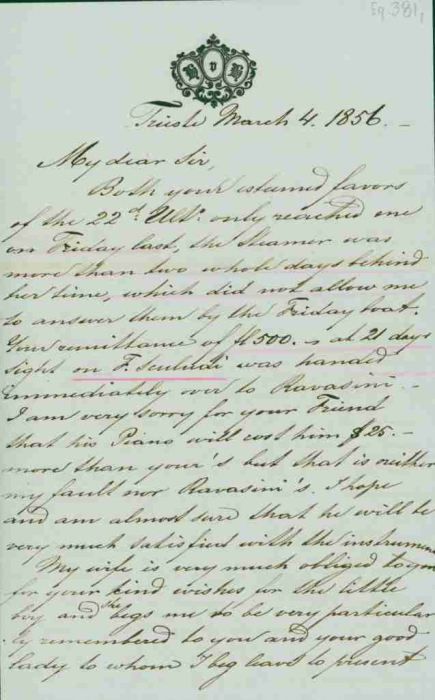 Eg. 381,
H v H
Trieste March 4. 1856. —
My dear Sir,
Both your esteemed favors
of the 22d. Ulto. only reached me
on Friday last, the Steamer was
more than two whole days behind
her time, which did not allow me
to answer them by the Friday boat.
Your remittance of fl 500. – at 21 days
sight on F. Sculudi was handed
immediately over to Ravasini. –
I am very sorry for your Friend
that his Piano will cost him $25. –
more than your's but that is neither
my fault nor Ravasini's. I hope
and am almost sure that he will be
very much satisfied with the instrument
My wife is very much obliged to you
for your kind wishes for the little
boy and she begs me to be very particular
ly remembered to you and your good
lady to whom I beg leave to present